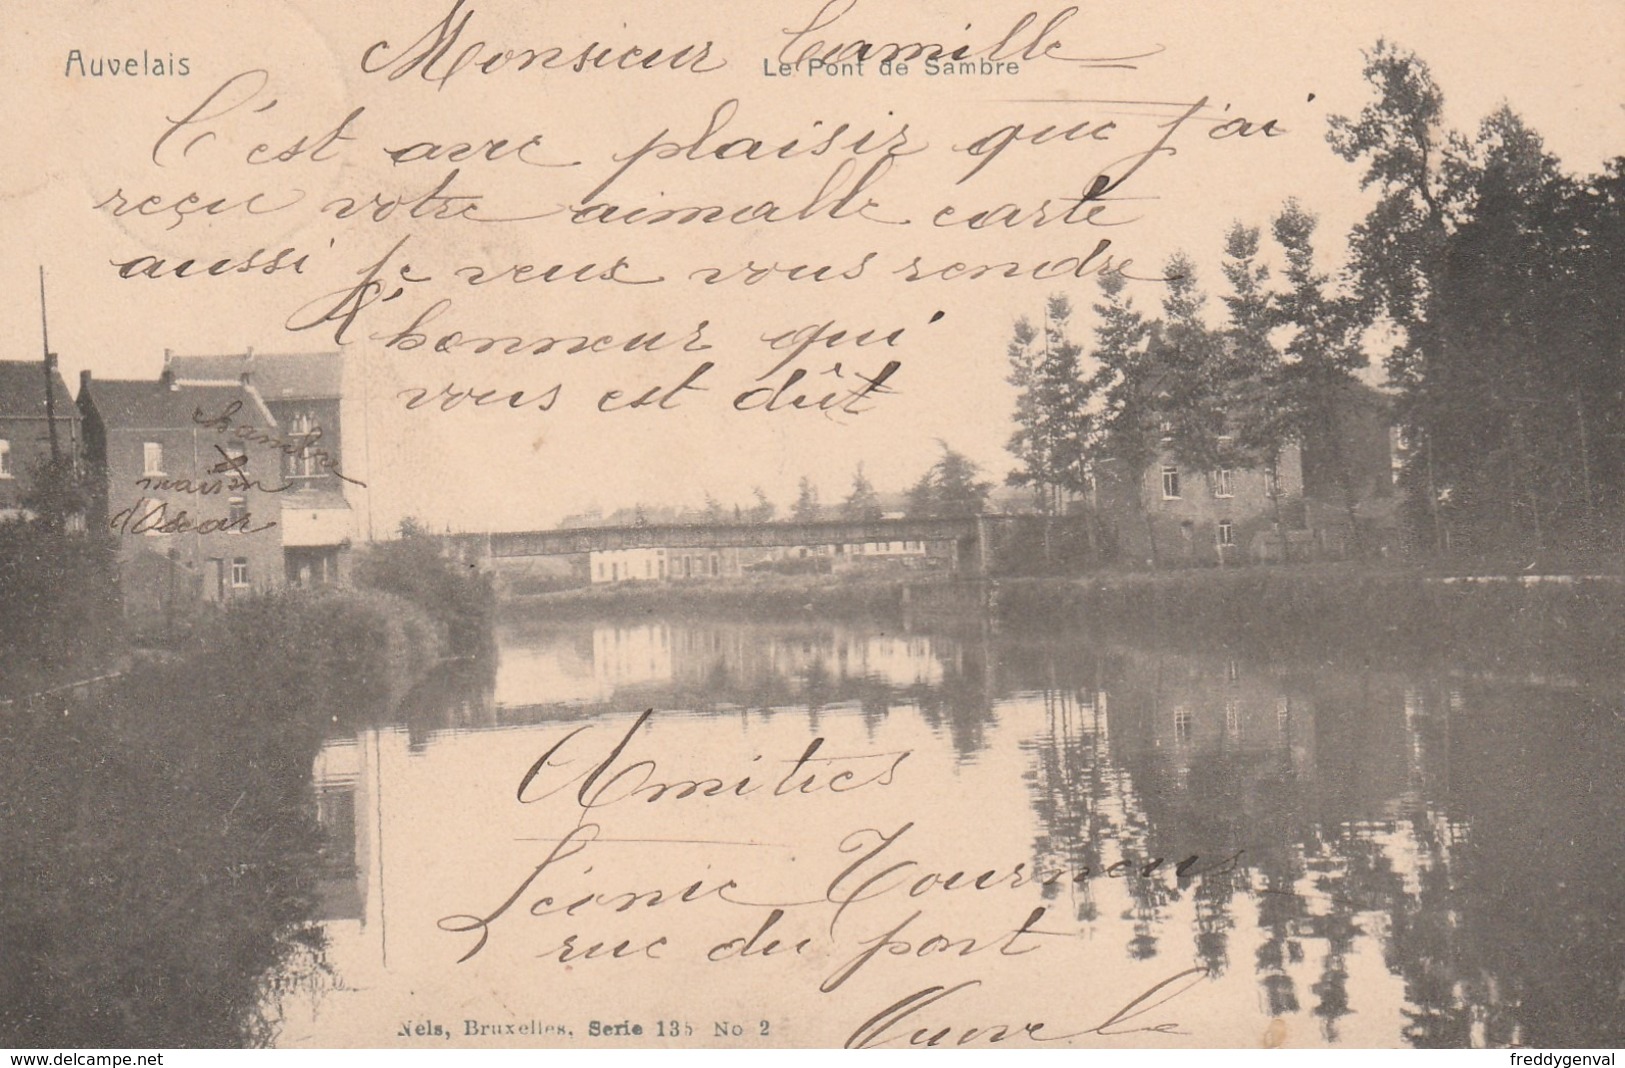 Auvelais
Monsieur Camille
Le Pont de Sambre
C'est avec plaisir que j'ai
reçu votre aimable carte
aussi je veux vous rendre
l'honneur qui
vous est dût
chambre
maison
d'Oscar
Amitiés
Léonie Tourneus
rue du pont
Nels, Bruxelles, Serie 135 No 2
freddygenval
https://www.delcampe.net